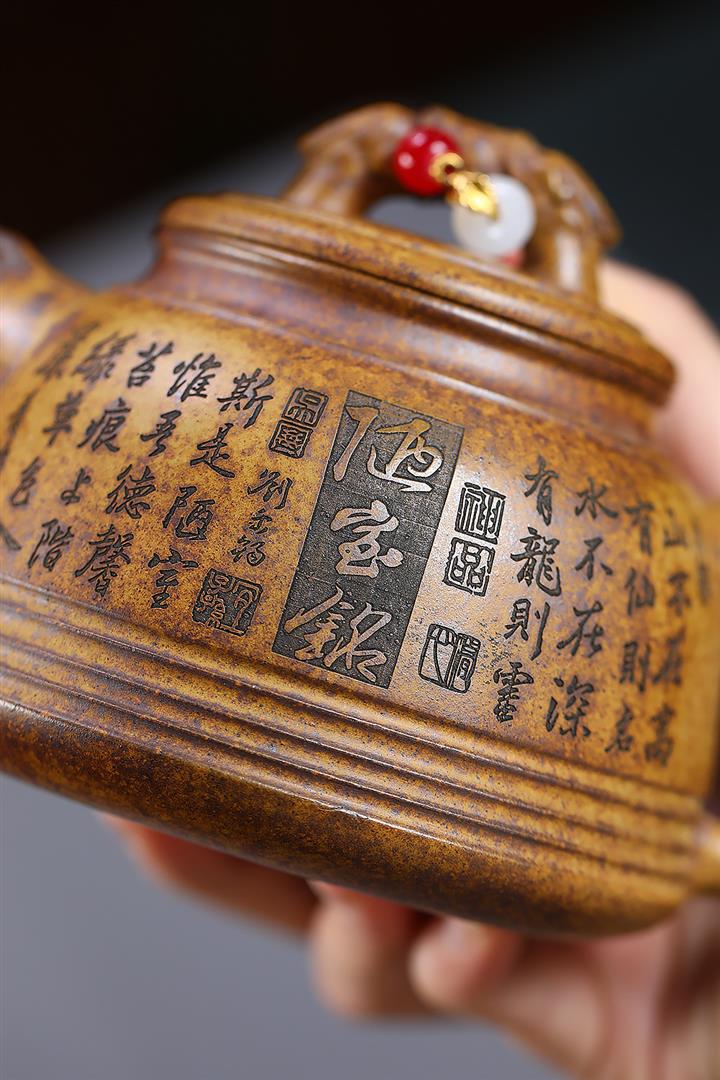 山不在高
有仙則名
水不在深
有龍則靈
神品
陋室銘
劉禹錫
斯是陋室
惟吾德馨
苔痕上階
綠草色入